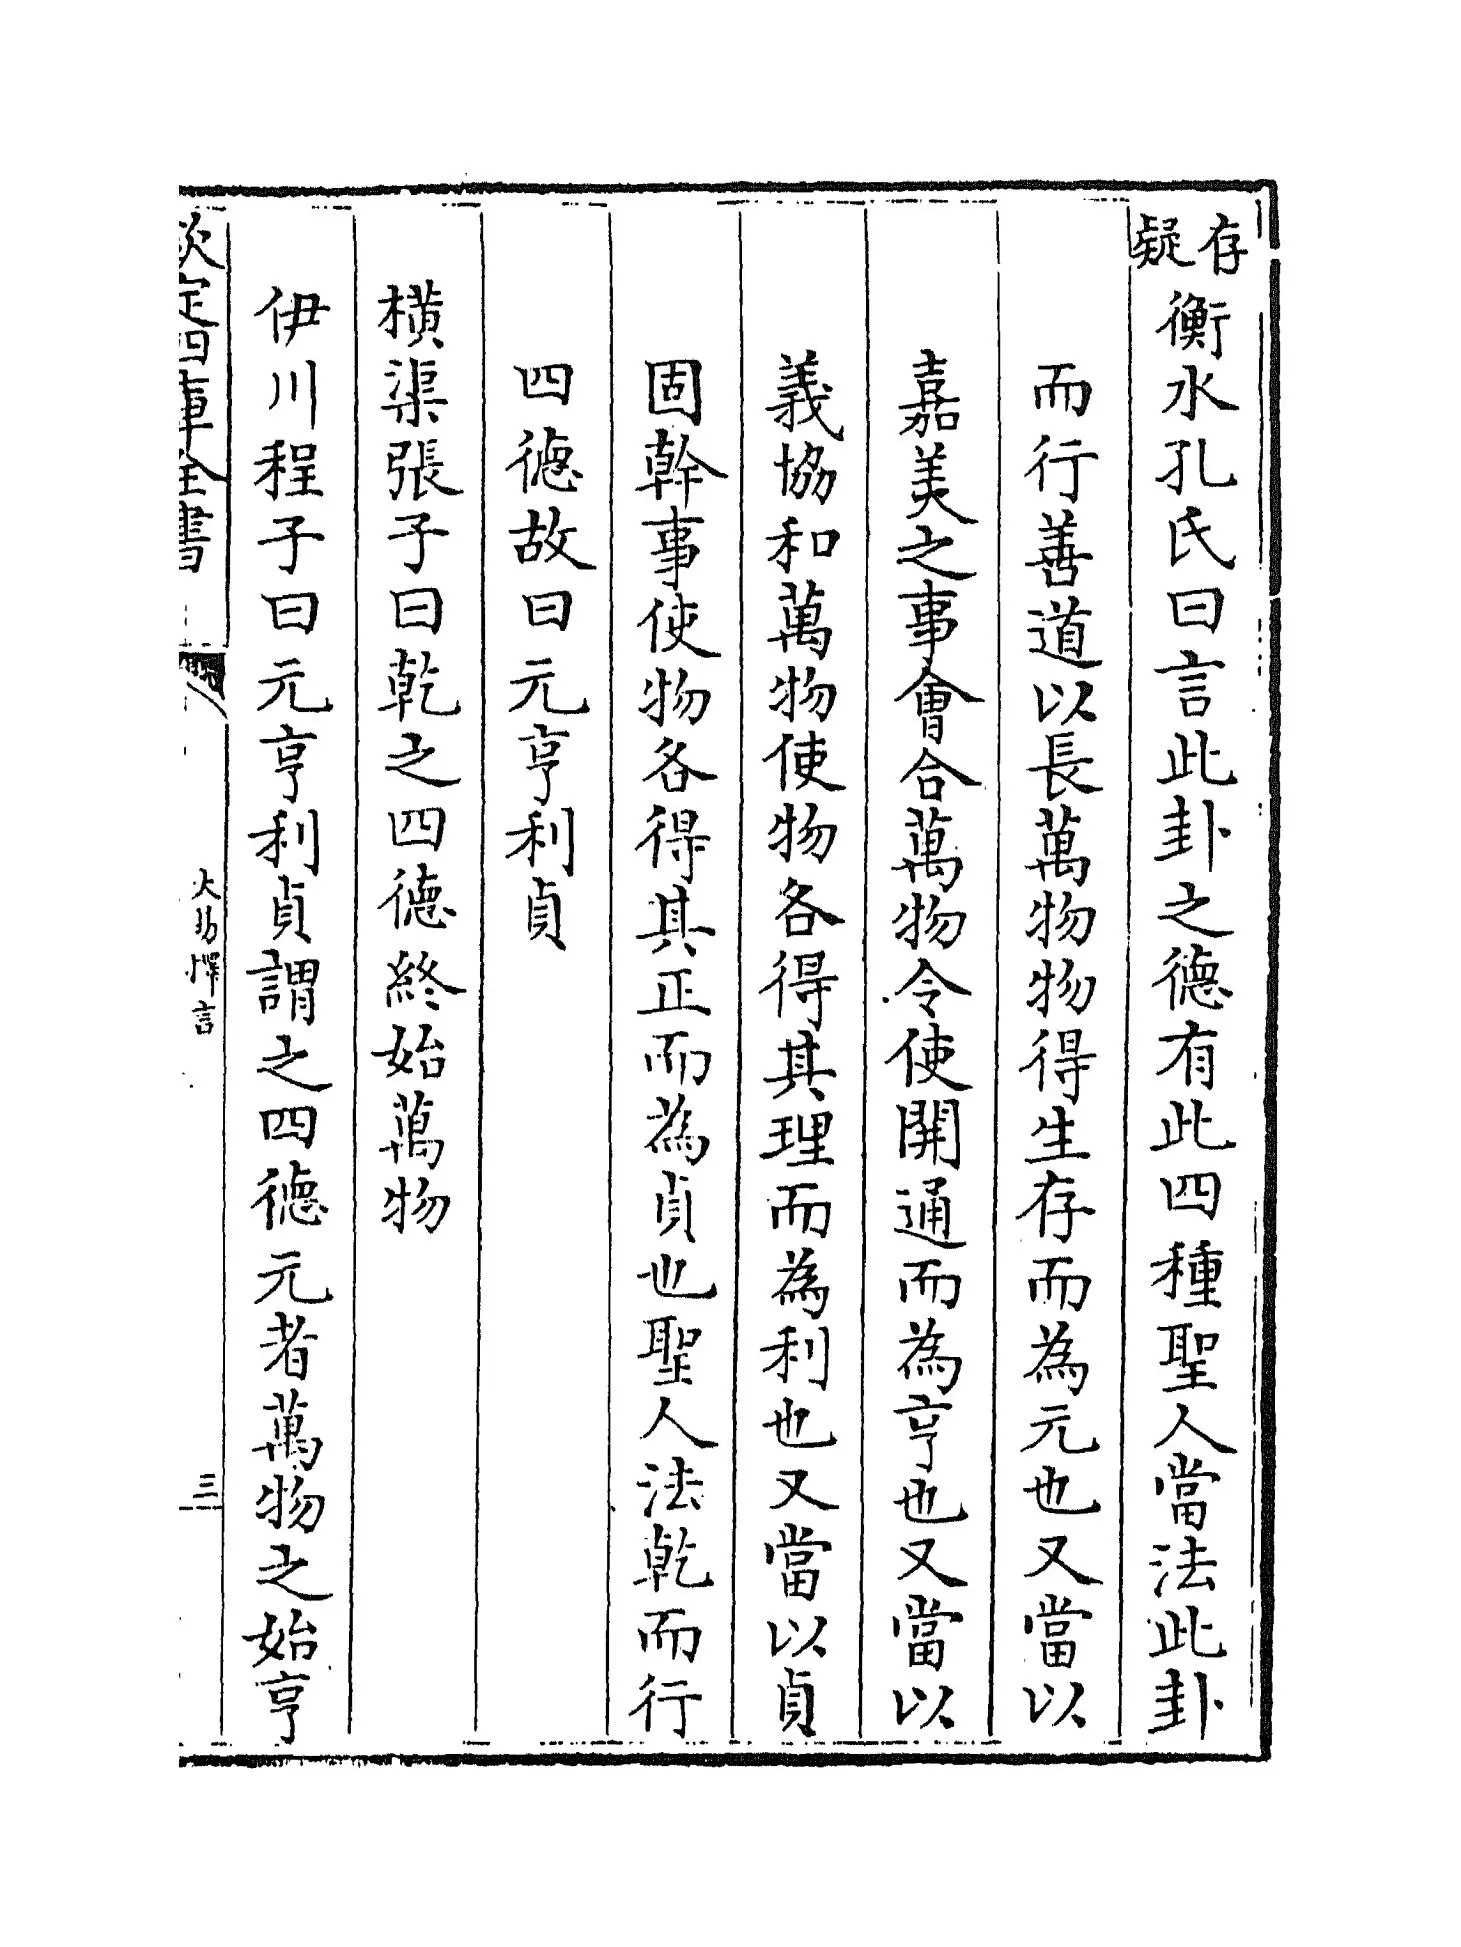 存疑衡水孔氏曰言此卦之德有此四種聖人當法此卦
而行善道以長萬物物得生存而為元也又當以
嘉美之事會合萬物令使開通而為亨也又當以
義協和萬物使物各得其理而為利也又當以貞
固幹事使物各得其正而為貞也聖人法乾而行
四德故曰元亨利貞
橫渠張子曰乾之四德終始萬物
伊川程子曰元亨利貞謂之四德元者萬物之始亨
欽定四庫全書
大易擇言
三